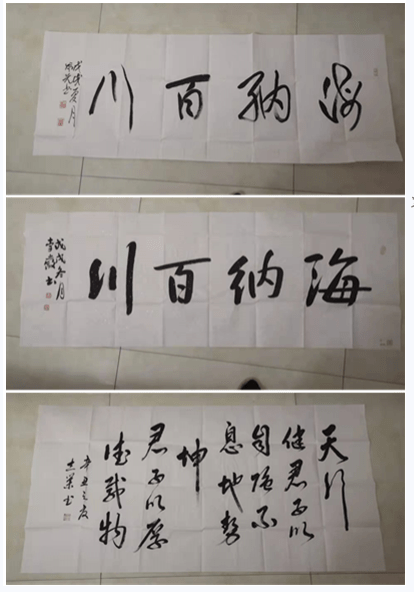 海纳百川
戊戌夏月
书
海纳百川
戊戌冬月
书
天行
健君子以
自强不
息地势
坤
君子以厚
德载物
辛丑之夏
书